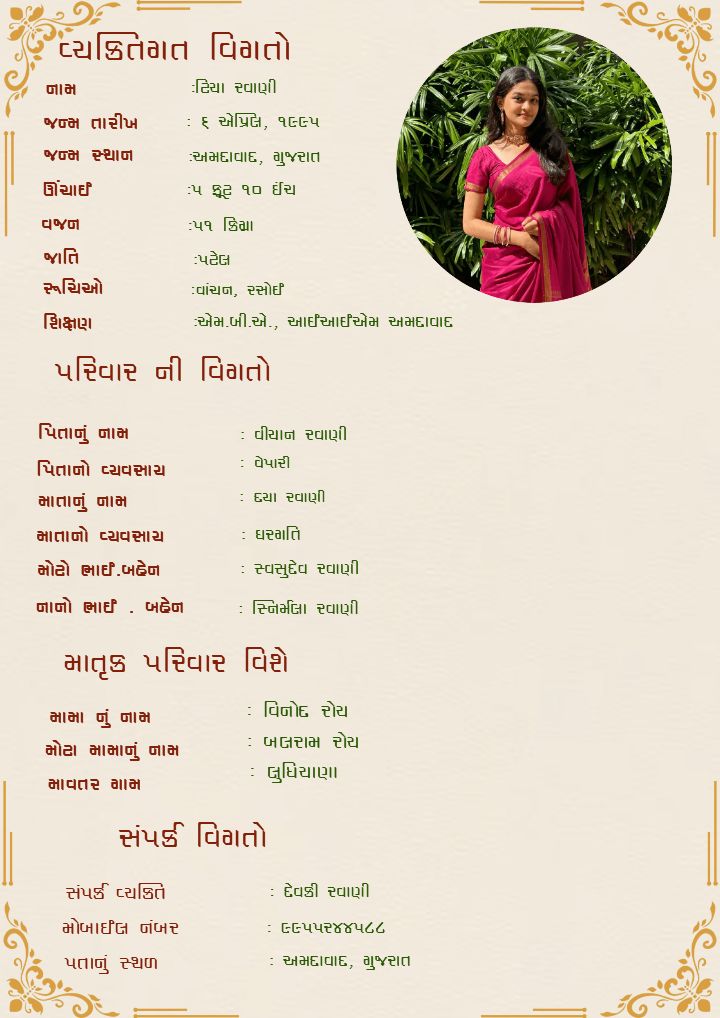 વ્યક્તિગત વિગતો
નામ :ટિયા રવાણી
જન્મ તારીખ : ૬ એપ્રિલ, ૧૯૯૫
જન્મ સ્થાન :અમદાવાદ, ગુજરાત
ઊંચાઈ :૫ ફૂટ ૧૦ ઈંચ
વજન :૫૧ કિગ્રા
જાતિ :પટેલ
રૂચિઓ :વાંચન, રસોઈ
શિક્ષણ :એમ.બી.એ., આઈઆઈએમ અમદાવાદ
પરિવાર ની વિગતો
પિતાનું નામ : વીયાન રવાણી
પિતાનો વ્યવસાય : વેપારી
માતાનું નામ : દયા રવાણી
માતાનો વ્યવસાય : ઘરગતિ
મોટો ભાઈ.બહેન : સ્વસુદેવ રવાણી
નાનો ભાઈ . બહેન : સ્નિર્મલા રવાણી
માતૃક પરિવાર વિશે
મામા નું નામ : વિનોદ રોય
મોટા મામાનું નામ : બલરામ રોય
માવતર ગામ : લુધિયાણા
સંપર્ક વિગતો
સંપર્ક વ્યક્તિ : દેવકી રવાણી
મોબાઈલ નંબર : ૯૯૫૫૨૪૪૫૮૮
પતાનું સ્થળ : અમદાવાદ, ગુજરાત